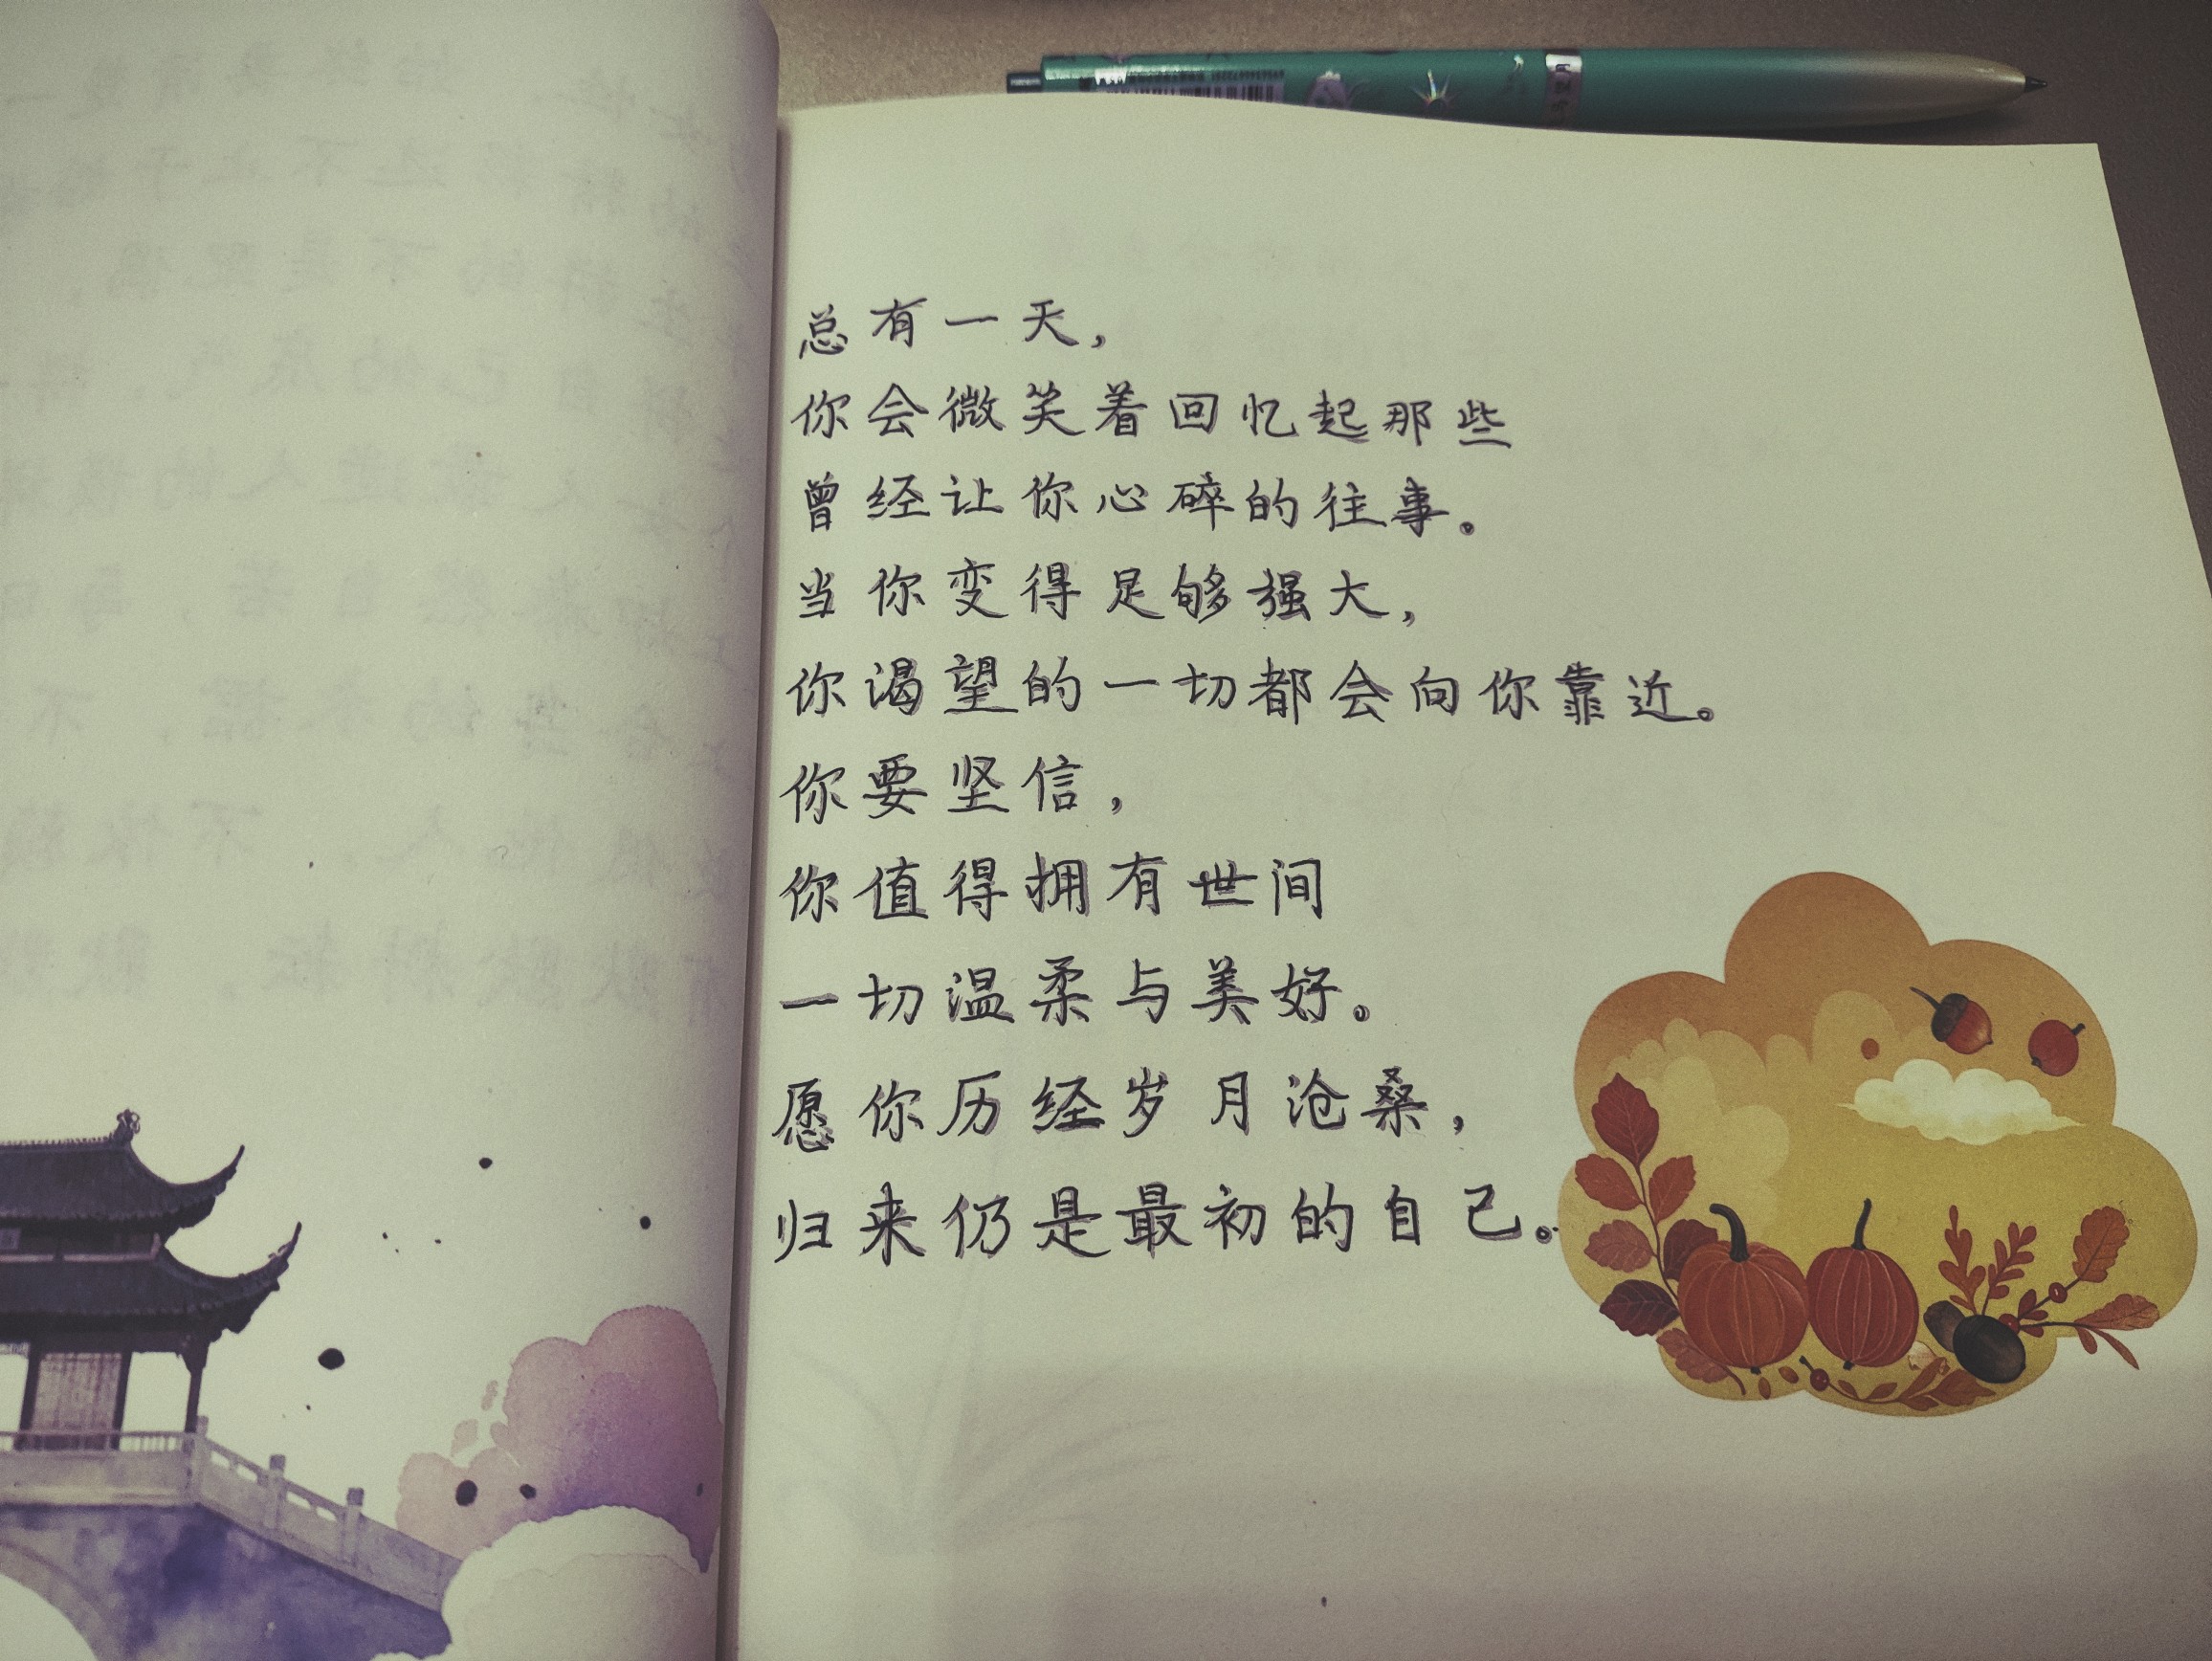 总有一天,
你会微笑着回忆起那些
曾经让你心碎的往事。
当你变得足够强大,
你渴望的一切都会向你靠近。
你要坚信,
你值得拥有世间
一切温柔与美好。
愿你历经岁月沧桑,
归来仍是最初的自己。